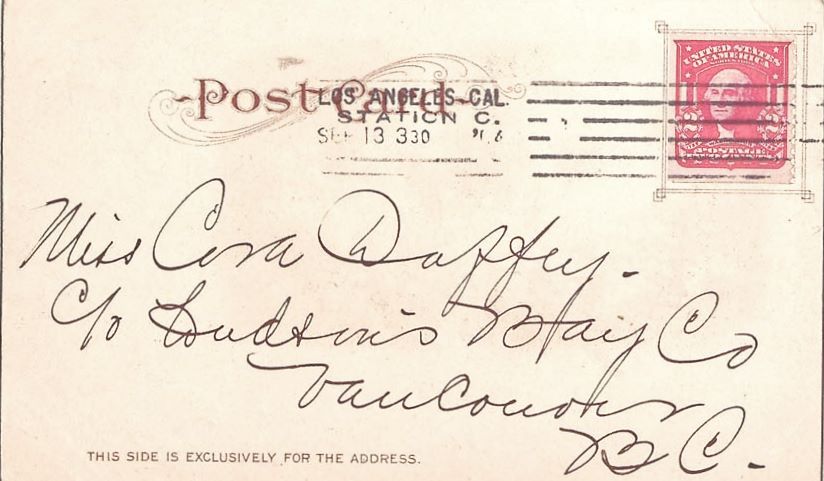 Post Card
LOS ANGELES. CAL.
STATION C.
SEP 13 330 '06
UNITED STATES
OF AMERICA
POSTAGE
Miss Cora Daffey.
c/o Hudson's Bay Co
Vancouver
B C.
THIS SIDE IS EXCLUSIVELY FOR THE ADDRESS.